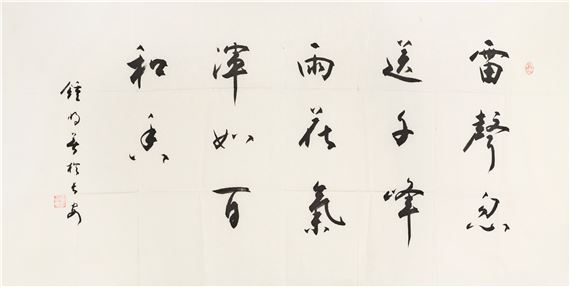 雷聲忽
送千峰
雨花氣
渾如百
和香
鍾明善於長安